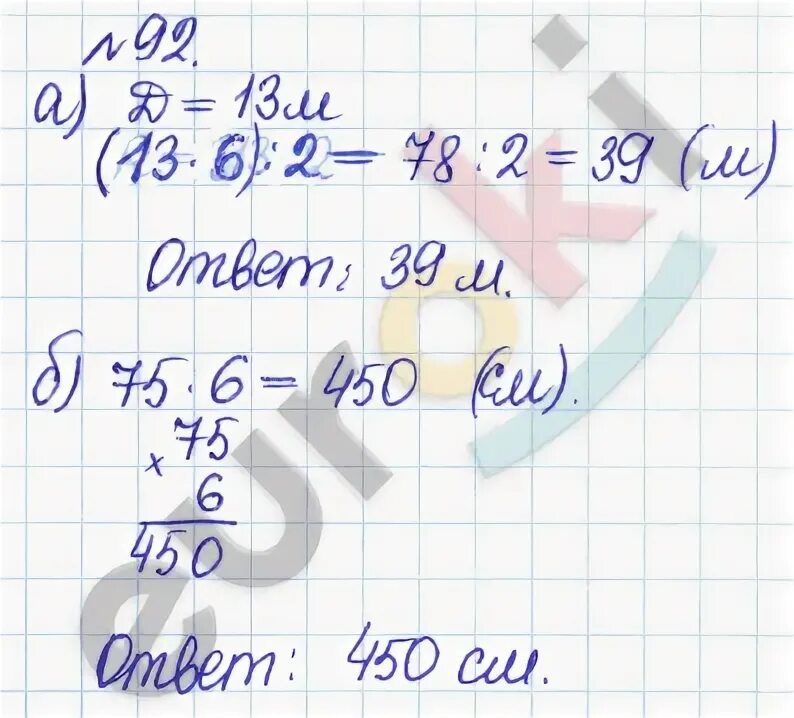 №92.
а) Д = 13м
(13 · 6) : 2 = 78 : 2 = 39 (м)
Ответ: 39 м.
б) 75 · 6 = 450 (см).
× 75
6
450
Ответ: 450 см.
euroki